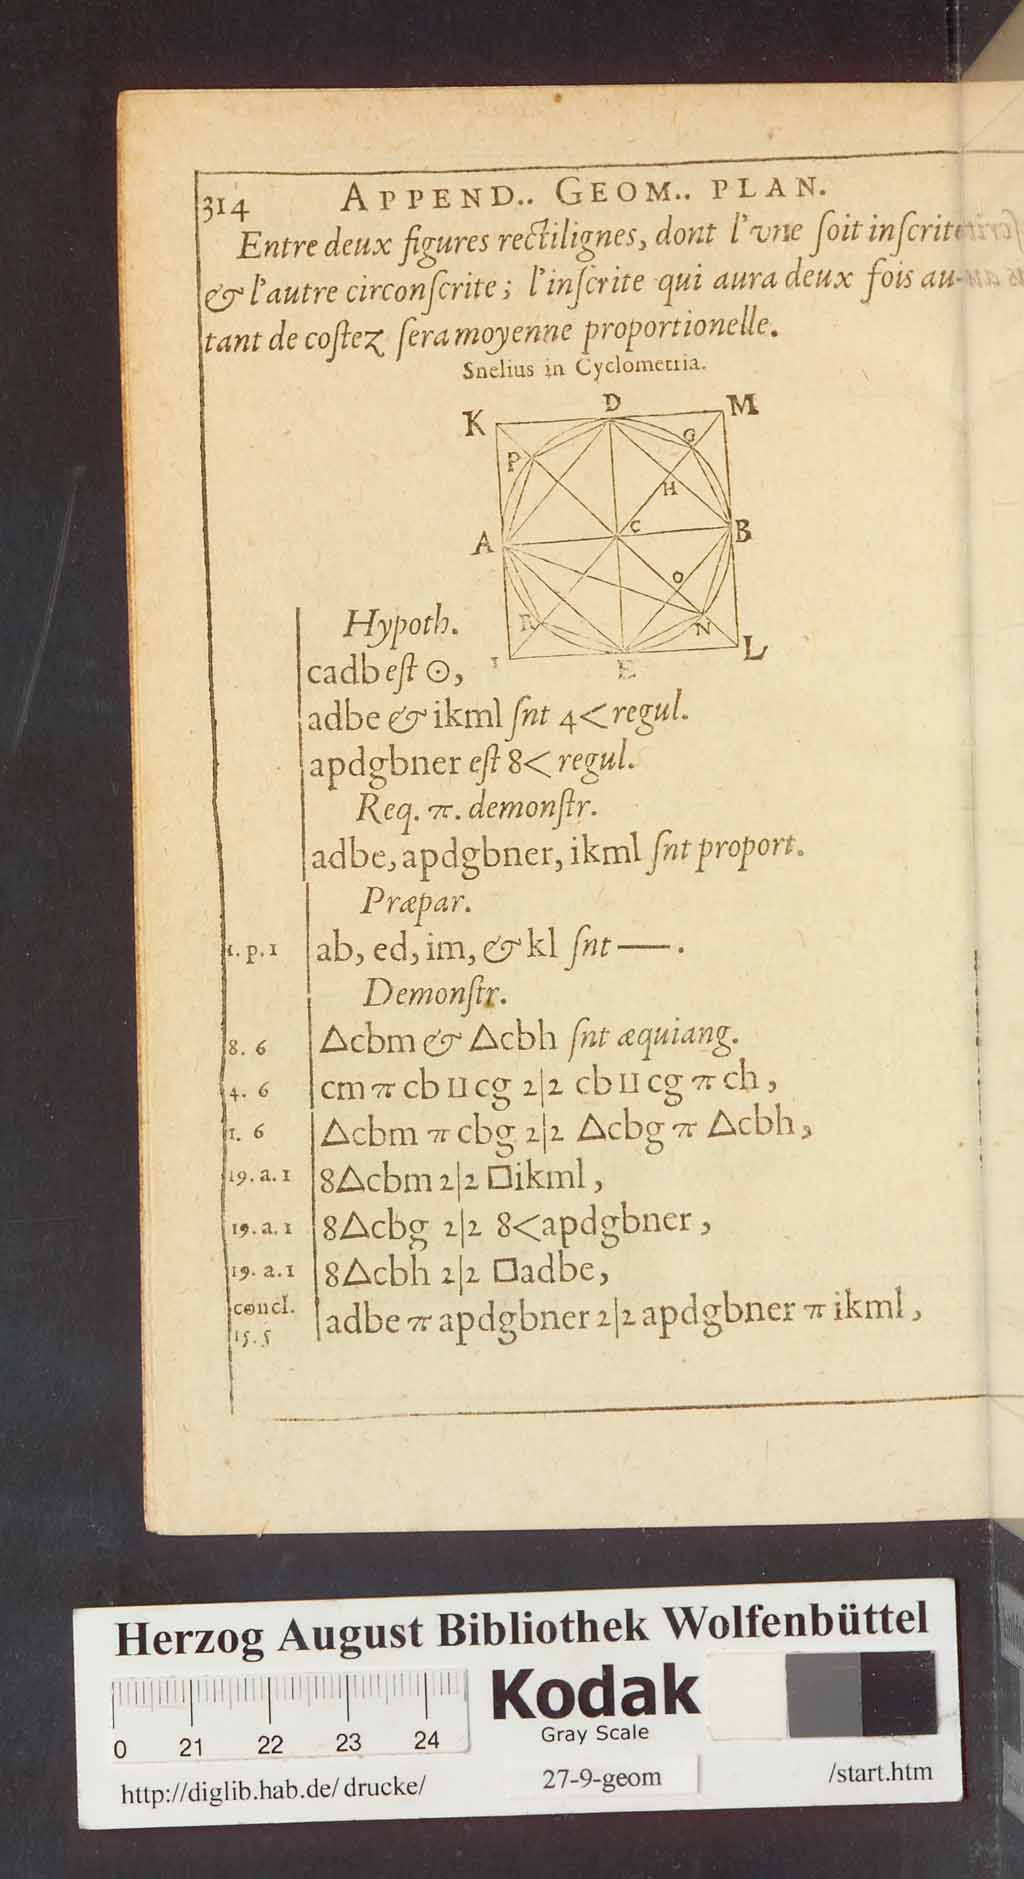 314 APPEND.. GEOM.. PLAN.
Entre deux figures rectilignes, dont l'vne ſoit inſcrite
& l'autre circonſcrite; l'inſcrite qui aura deux fois au-
tant de coſtez ſera moyenne proportionelle.
Snelius in Cyclometria.
K D M
P G
H
A C B
O
R N
I E L
Hypoth.
cadb eſt ⊙,
adbe & ikml ſnt 4< regul.
apdgbner eſt 8< regul.
Req. π. demonſtr.
adbe, apdgbner, ikml ſnt proport.
Præpar.
1. p. 1 ab, ed, im, & kl ſnt —.
Demonſtr.
8. 6 △cbm & △cbh ſnt æquiang.
4. 6 cm π cb ⊔ cg 2|2 cb ⊔ cg π ch,
1. 6 △cbm π cbg 2|2 △cbg π △cbh,
19. a. 1 8△cbm 2|2 □ikml,
19. a. 1 8△cbg 2|2 8<apdgbner,
19. a. 1 8△cbh 2|2 □adbe,
concl.
15. 5 adbe π apdgbner 2|2 apdgbner π ikml,
Herzog August Bibliothek Wolfenbüttel
Kodak
Gray Scale
0 21 22 23 24
http://diglib.hab.de/drucke/ 27-9-geom /start.htm